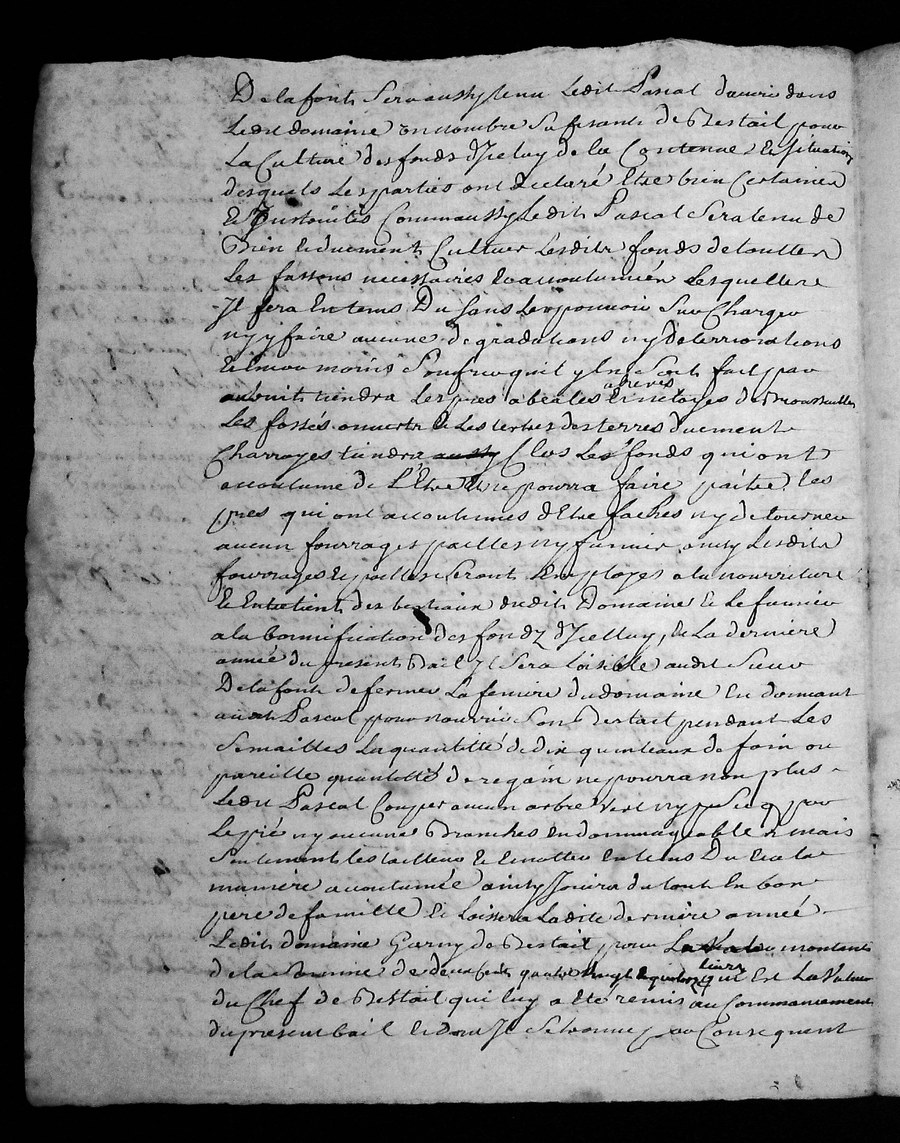 Delafont Sera aussy tenu Ledit Pascal davoir dans
Ledit domaine un nombre Sufisant de Bestail pour
La Culture des fonds d'Iceluy de la Contenue & Situation
desquels Les parties ont declaré Etre bien Certaines
& Comm aussy Ledit Pascal Sera tenu de
Bien & duement Cultiver Lesdits fonds de touttes
Les fassons necessaires & accoutumées Lesquelles
Il fera En tems Du Sans Les pouvoir Sur Charger
ny y faire aucune degradations ny deteriorations
Et moins Soufrir quil y En Soit fait par
autruit tiendra Les prés abreves & netoyes de Broussailles
Les fossés ouverts & Les terres duement
Charroyes tiendra aussy Clos Les fonds qui ont
accoutume de L'Etre & ne pourra faire paitre les
pres qui ont accoutumes d'Etre fachés ny detourner
aucun fourrages pailles ny fumier ainsy Lesdits
fourrages & pailles Seront Employes a la nourriture
& Entretient des bestiaux dudit Domaine & Le fumier
a la bonnification des fondz d'Icelluy, & La derniere
année du present Bail Il Sera Loisible audit Sieur
Delafont de fermer La feniere du domaine En donnant
audit Pascal pour nourrir Son Bestail pendant Les
Semailles La quantitté de dix quinteaux de foin ou
pareille quantitté de regain ne pourra non plus
Ledit Pascal Couper aucun arbre Vert ny par
Le pié ny aucune Branches Endommageable mais
Seulement les tailler & Emotter En tems Du & a la
maniere accoutumée ainsy Jouira du tout En bon
pere de famille & Laissera Ladite derniere année
Ledit domaine Garny de Bestail pour La Valeu montant
de la Somme de deux cent quatre vingt livres qui Est La Valeur
du Chef de Bestail qui luy a Ete remis au Commancement
du present bail & dont Il Se par Consequent